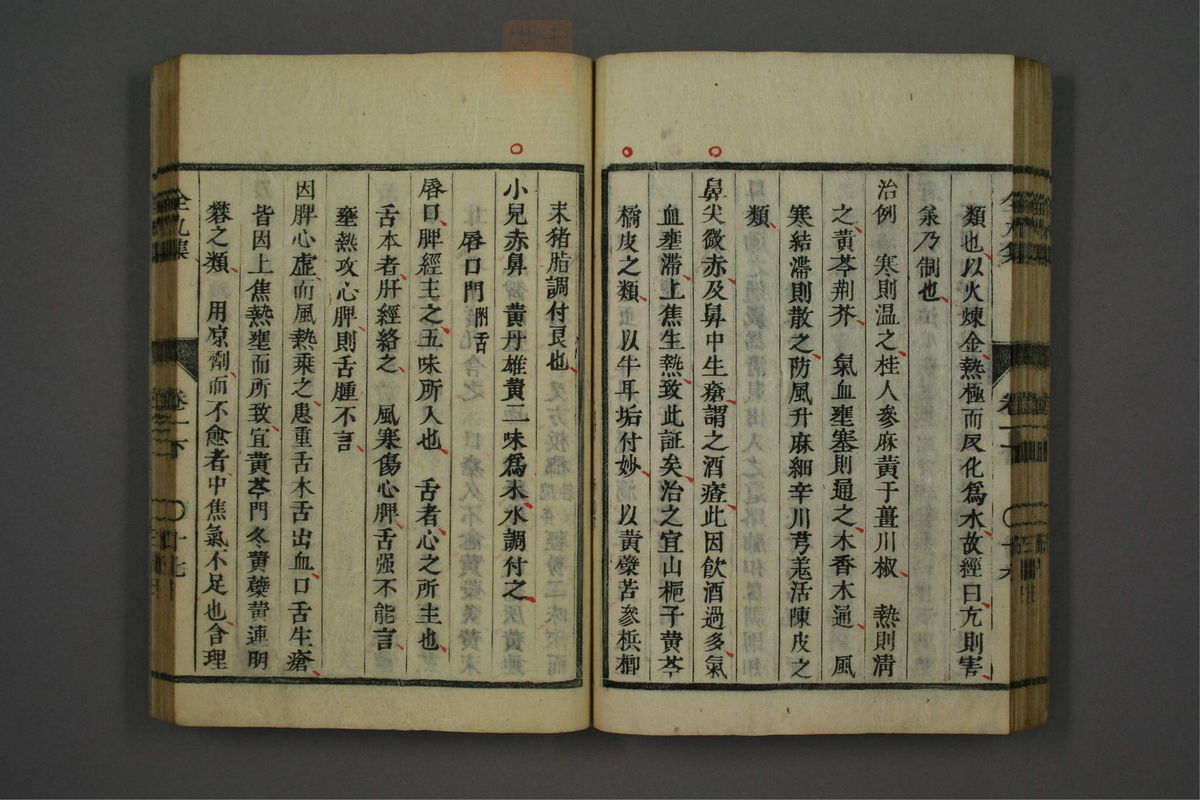 類也以火煉金熱極而反化爲水故經曰亢則害
承乃制也
治例　寒則温之桂人參麻黄干薑川椒　熱則清
之黄芩荆芥　氣血壅塞則通之木香木通　風
寒結滯則散之防風升麻細辛川芎羗活陳皮之
類
鼻尖微赤及鼻中生瘡謂之酒齄此因飲酒過多氣
血壅滯上焦生熱致此証矣治之宜山栀子黄芩
橘皮之類　以牛耳垢付妙　以黄蘗苦參梹榔
末猪脂調付良也
小兒赤鼻　黄丹雄黄二味爲末水調付之
唇口門 附舌
唇口脾經主之五味所入也　舌者心之所主也
舌本者肝經絡之　風寒傷心脾舌强不能言
壅熱攻心脾則舌腫不言
因脾心虚而風熱乘之患重舌木舌出血口舌生瘡
皆因上焦熱壅而所致宜黄芩門冬黄蘗黄連明
礬之類　用凉劑而不愈者中焦氣不足也含理
全九集
卷一下
十七